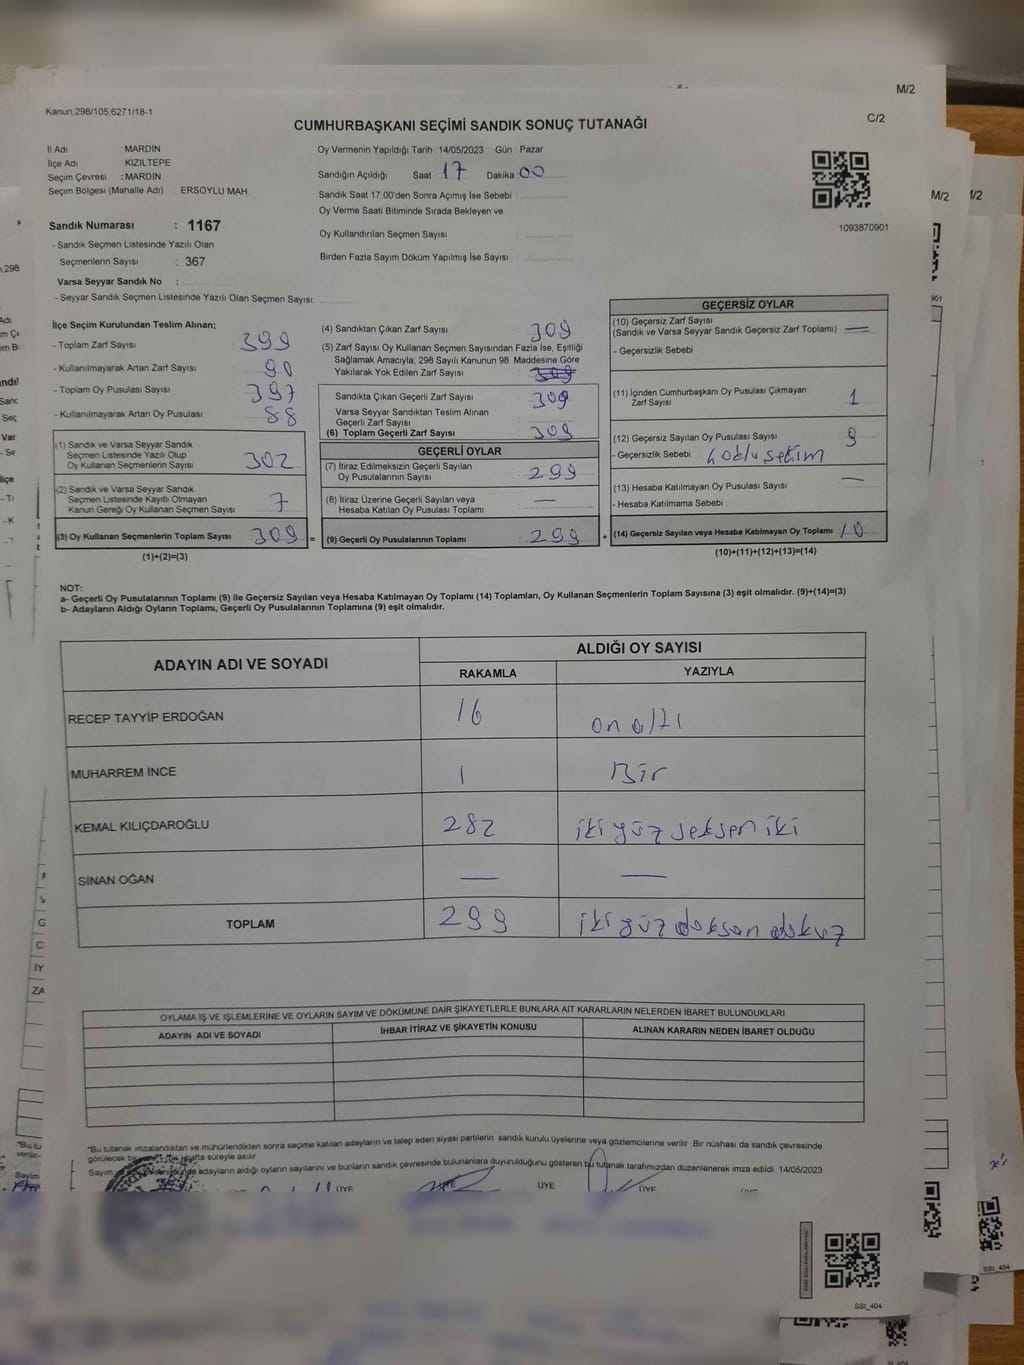 M/2
Kanun 298/105,6271/18-1
CUMHURBAŞKANI SEÇİMİ SANDIK SONUÇ TUTANAĞI
C/2
İl Adı MARDİN
İlçe Adı KIZILTEPE
Seçim Çevresi : MARDİN
Seçim Bölgesi (Mahalle Adı) ERSOYLU MAH.
Oy Vermenin Yapıldığı Tarih : 14/05/2023 Gün : Pazar
Sandığın Açıldığı Saat : 17 Dakika : 00
Sandık Saat 17.00'den Sonra Açımış İse Sebebi :
Oy Verme Saati Bitiminde Sırada Bekleyen ve
Oy Kullandırılan Seçmen Sayısı :
Birden Fazla Sayım Döküm Yapılmış İse Sayısı :
1093870901
Sandık Numarası : 1167
- Sandık Seçmen Listesinde Yazılı Olan
Seçmenlerin Sayısı : 367
Varsa Seyyar Sandık No :
- Seyyar Sandık Seçmen Listesinde Yazılı Olan Seçmen Sayısı:
İlçe Seçim Kurulundan Teslim Alınan;
- Toplam Zarf Sayısı 399
- Kullanılmayarak Artan Zarf Sayısı 90
- Toplam Oy Pusulası Sayısı 397
- Kullanılmayarak Artan Oy Pusulası 88
(1) Sandık ve Varsa Seyyar Sandık
Seçmen Listesinde Yazılı Olup
Oy Kullanan Seçmenlerin Sayısı 302
(2) Sandık ve Varsa Seyyar Sandık
Seçmen Listesinde Kayıtlı Olmayan
Kanun Gereği Oy Kullanan Seçmen Sayısı 7
(3) Oy Kullanan Seçmenlerin Toplam Sayısı 309 =
(1)+(2)=(3)
(4) Sandıktan Çıkan Zarf Sayısı : 309
(5) Zarf Sayısı Oy Kullanan Seçmen Sayısından Fazla İse, Eşitliği
Sağlamak Amacıyla; 298 Sayılı Kanunun 98. Maddesine Göre
Yakılarak Yok Edilen Zarf Sayısı : 309
Sandıkta Çıkan Geçerli Zarf Sayısı : 309
Varsa Seyyar Sandıktan Teslim Alınan
Geçerli Zarf Sayısı :
(6) Toplam Geçerli Zarf Sayısı : 309
GEÇERLİ OYLAR
(7) İtiraz Edilmeksizin Geçerli Sayılan
Oy Pusulalarının Sayısı : 299
(8) İtiraz Üzerine Geçerli Sayılan veya
Hesaba Katılan Oy Pusulası Toplamı : —
(9) Geçerli Oy Pusulalarının Toplamı : 299 +
GEÇERSİZ OYLAR
(10) Geçersiz Zarf Sayısı
(Sandık ve Varsa Seyyar Sandık Geçersiz Zarf Toplamı) —
- Geçersizlik Sebebi :
(11) İçinden Cumhurbaşkanı Oy Pusulası Çıkmayan
Zarf Sayısı 1
(12) Geçersiz Sayılan Oy Pusulası Sayısı 9
- Geçersizlik Sebebi : Çoklu seçim
(13) Hesaba Katılmayan Oy Pusulası Sayısı —
- Hesaba Katılmama Sebebi :
(14) Geçersiz Sayılan veya Hesaba Katılmayan Oy Toplamı 10
(10)+(11)+(12)+(13)=(14)
NOT:
a- Geçerli Oy Pusulalarının Toplamı (9) ile Geçersiz Sayılan veya Hesaba Katılmayan Oy Toplamı (14) Toplamları, Oy Kullanan Seçmenlerin Toplam Sayısına (3) eşit olmalıdır. (9)+(14)=(3)
b- Adayların Aldığı Oyların Toplamı, Geçerli Oy Pusulalarının Toplamına (9) eşit olmalıdır.
ADAYIN ADI VE SOYADI
ALDIĞI OY SAYISI
RAKAMLA YAZIYLA
RECEP TAYYİP ERDOĞAN 16 on altı
MUHARREM İNCE 1 Bir
KEMAL KILIÇDAROĞLU 282 iki yüz seksen iki
SİNAN OĞAN — —
TOPLAM 299 iki yüz doksan dokuz
OYLAMA İŞ VE İŞLEMLERİNE VE OYLARIN SAYIM VE DÖKÜMÜNE DAİR ŞİKAYETLERLE BUNLARA AİT KARARLARIN NELERDEN İBARET BULUNDUKLARI
ADAYIN ADI VE SOYADI İHBAR İTİRAZ VE ŞİKAYETİN KONUSU ALINAN KARARIN NEDEN İBARET OLDUĞU
*Bu tutanak imzalandıktan ve mühürlendikten sonra seçime katılan adayların ve talep eden siyasi partilerin sandık kurulu üyelerine veya gözlemcilerine verilir. Bir nüshası da sandık çevresinde
görülecek bir hafta süreyle asılır.
Sayım adayların aldığı oyların sayılarını ve bunların sandık çevresinde bulunanlara duyurulduğunu gösteren bu tutanak tarafımızdan düzenlenerek imza edildi. 14/05/2023
ÜYE ÜYE ÜYE ÜYE
SSI_404
M/2
M/2
SSI_404